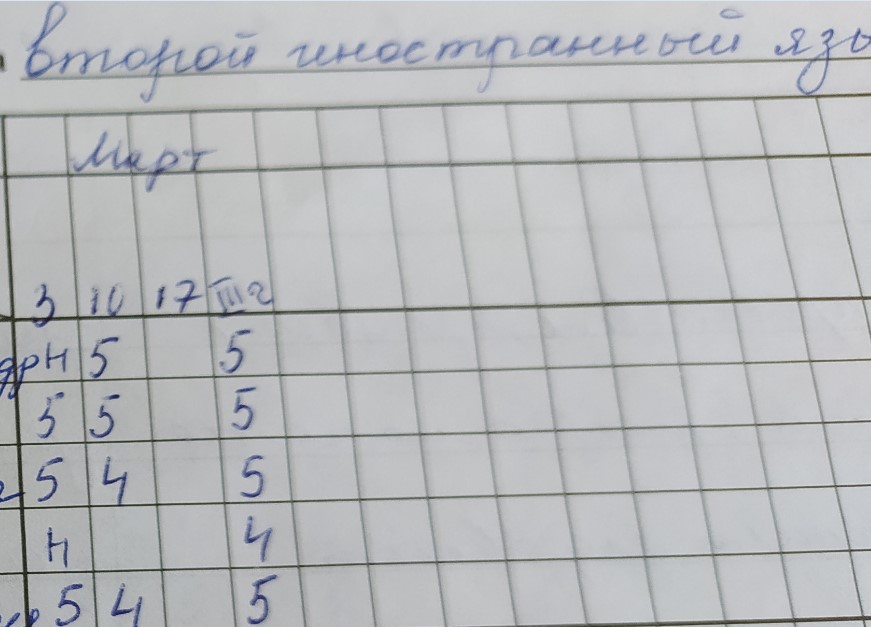 второй иностранный язы
Март
3 10 17 III г
др Н 5 5
5 5 5
5 4 5
Н 4
5 4 5